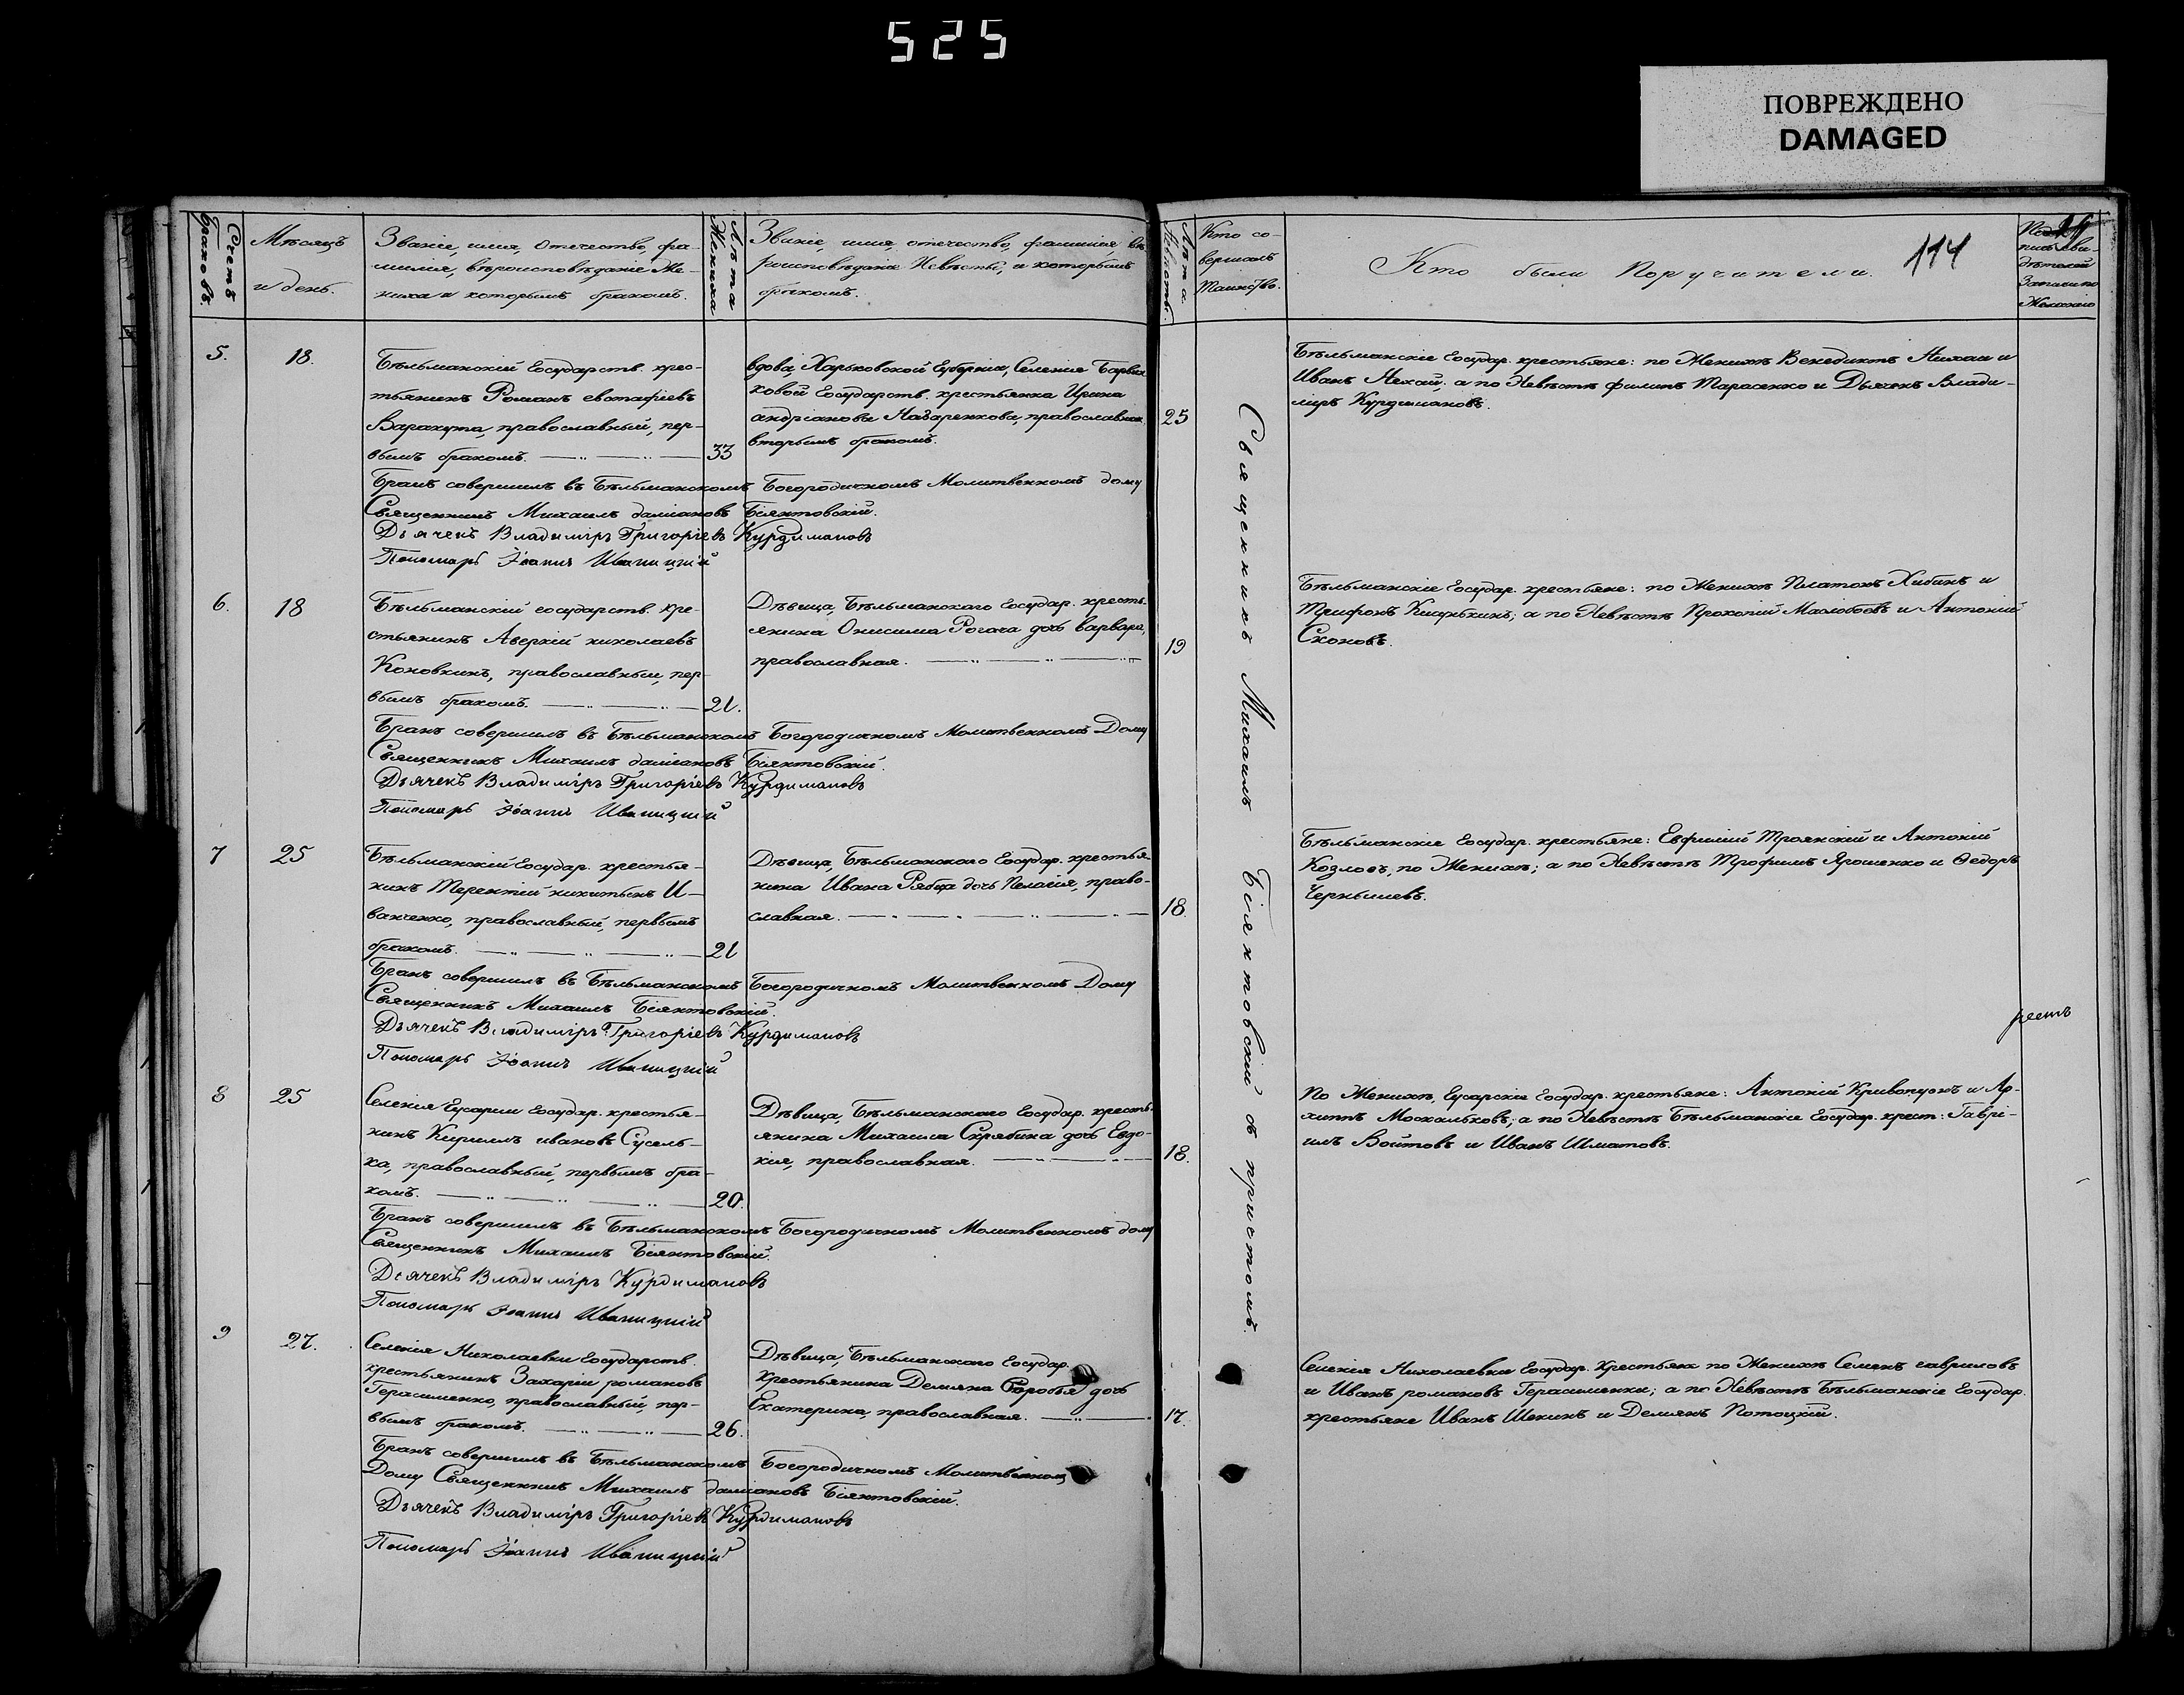 525
ПОВРЕЖДЕНО
DAMAGED
Счетъ Браковъ.
Мѣсяцъ
и день.
Званіе, имя, отечество, фа-
милія, вѣроисповѣданіе Же-
ниха и которымъ бракомъ.
Лѣта Жениха
Званіе, имя, отечество, фамилія, вѣ-
роисповѣданіе Невѣсты, и которымъ
бракомъ.
Лѣта Невѣсты.
Кто со-
вершалъ
Таинство.
Кто были Поручители.
114
5.
18.
Бѣльманскій Государств. крес-
тьянинъ Романъ евстафіевъ
Варахута, православный, пер-
вымъ бракомъ.
33
вдова, Харьковской Губерніи, Селенія Барвин
ковой Государств. крестьянка Ирина
андріанова Назаренкова, православная
вторымъ бракомъ.
25
Бѣльманскіе Государ. крестьяне: по Женихѣ Венедиктъ Нихаи и
Иванъ Нехай; а по Невѣстѣ филипъ Тарасенко и Дьячекъ Влади-
міръ Курдимановъ.
Бракъ совершилъ въ Бѣльманскомъ Богородичномъ Молитвенномъ дому
Священникъ Михаилъ даміановъ Біянтовскій.
Дьячекъ Владиміръ Григоріевъ Курдимановъ
Пономарь Іоаннъ Иваницкій
Священникъ Михаилъ Біянтовскій съ притчомъ.
6.
18
Бѣльманскій государств. кре-
стьянинъ Аверкій николаевъ
Коновкинъ, православный, пер-
вымъ бракомъ.
21.
Дѣвица, Бѣльманскаго Государ. кресть-
янина Онисима Рогача дочь варвара,
православная.
19
Бѣльманскіе Государ. крестьяне: по Женихѣ Платонъ Хибинъ и
Трифонъ ; а по Невѣстѣ Прокопій Маслобоевъ и Антоній
Сконовъ.
Бракъ совершилъ въ Бѣльманскомъ Богородичномъ Молитвенномъ Дому
Священникъ Михаилъ даміановъ Біянтовскій.
Дьячекъ Владиміръ Григоріевъ Курдимановъ
Пономарь Іоаннъ Иваницкій
7
25
Бѣльманскій Государ. крестья-
нинъ Терентій никитинъ И-
ванченко, православный, первымъ
бракомъ.
21
Дѣвица, Бѣльманскаго Государ. крестья-
нина Ивана Рябца дочь Пелагія, право-
славная.
18.
Бѣльманскіе Государ. крестьяне: Евфимій Троянскій и Антоній
Козловъ, по Женихѣ; а по Невѣстѣ Трофимъ Ярошенко и Ѳедоръ
Чернышевъ.
Бракъ совершилъ въ Бѣльманскомъ Богородичномъ Молитвенномъ Дому
Священникъ Михаилъ Біянтовскій.
Дьячекъ Владиміръ Григоріевъ Курдимановъ
Пономарь Іоаннъ Иваницкій
8
25
Селенія Гусарки Государ. крестья-
нинъ Кириллъ ивановъ Сусель-
ка, православный, первымъ бра-
комъ.
20.
Дѣвица, Бѣльманскаго Государ. кресть-
янина Михаила Скрябина дочь Евдо-
кія, православная.
18.
По Женихѣ, Гусарскіе Государ. крестьяне: Антоній Кривопускъ и Ар-
хиппъ Москальковъ; а по Невѣстѣ Бѣльманскіе Государ. крест: Гаврі-
илъ Войтовъ и Иванъ Шматовъ.
Бракъ совершилъ въ Бѣльманскомъ Богородичномъ Молитвенномъ дому
Священникъ Михаилъ Біянтовскій.
Дьячекъ Владиміръ Курдимановъ
Пономарь Іоаннъ Иваницкій
9
27.
Селенія Николаевки Государств.
крестьянинъ Захарій романовъ
Герасименко, православный, пер-
вымъ бракомъ.
26.
Дѣвица, Бѣльманскаго Государ.
крестьянина Демяна Соробья дочь
Екатерина, православная.
17.
Селенія Николаевки Государ. Крестьяне по Женихѣ Семенъ гавриловъ
и Иванъ романовъ Герасименки; а по Невѣстѣ Бѣльманскіе Государ.
крестьяне Иванъ Шекинъ и Демянъ Потоцкій.
Бракъ совершилъ въ Бѣльманскомъ Богородичномъ Молитвенномъ
Дому Священникъ Михаилъ даміановъ Біянтовскій.
Дьячекъ Владиміръ Григоріевъ Курдимановъ
Пономарь Іоаннъ Иваницкій